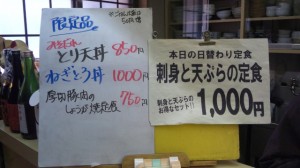 限定品
とり天丼 850円
ねぎとろ丼 1000円
厚切豚肉の
しょうが焼定食 750円
本日の日替わり定食
刺身と天ぷらの定食
刺身と天ぷらの
お得なセット!!
1,000円